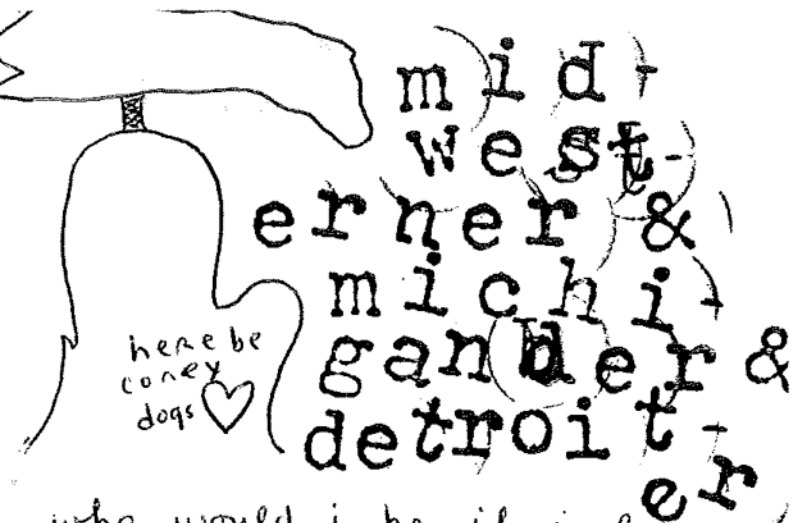 mid-
west-
erner &
michi-
gander &
detroit-
er
here be
coney
dogs
who would i be if i